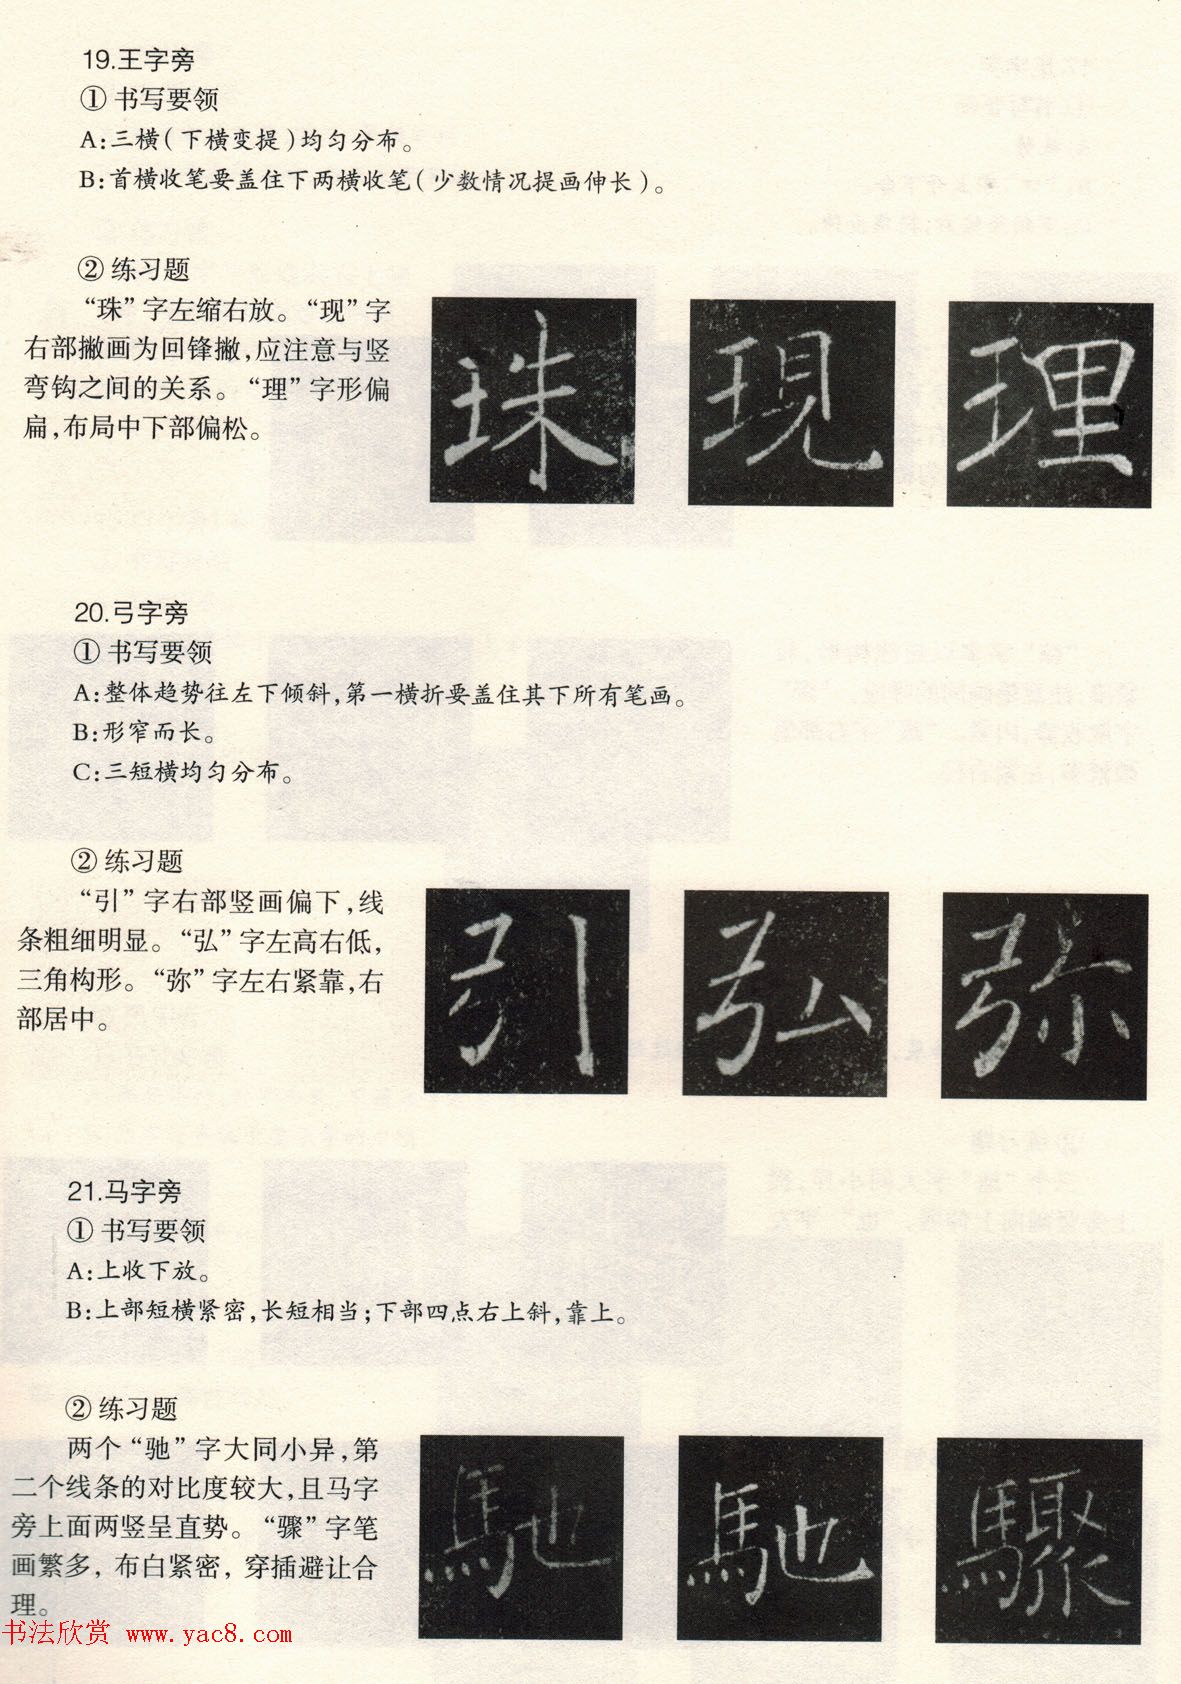 19.王字旁
① 书写要领
A:三横(下横变提)均匀分布。
B:首横收笔要盖住下两横收笔(少数情况提画伸长)。
② 练习题
“珠”字左缩右放。“现”字
右部撇画为回锋撇,应注意与竖
弯钩之间的关系。“理”字形偏
扁,布局中下部偏松。
珠 現 理
20.弓字旁
① 书写要领
A:整体趋势往左下倾斜,第一横折要盖住其下所有笔画。
B:形窄而长。
C:三短横均匀分布。
② 练习题
“引”字右部竖画偏下,线
条粗细明显。“弘”字左高右低,
三角构形。“弥”字左右紧靠,右
部居中。
引 弘 弥
21.马字旁
① 书写要领
A:上收下放。
B:上部短横紧密,长短相当;下部四点右上斜,靠上。
② 练习题
两个“驰”字大同小异,第
二个线条的对比度较大,且马字
旁上面两竖呈直势。“骤”字笔
画繁多,布白紧密,穿插避让合
理。
馳 馳 驟
书法欣赏 www.yac8.com